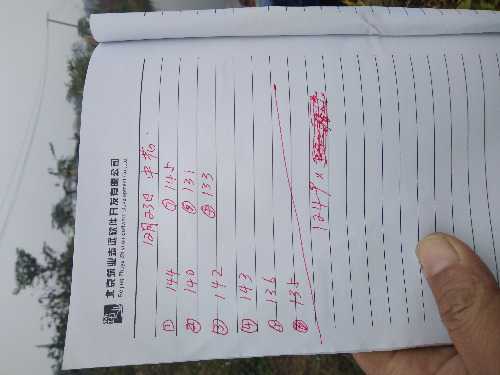 北京筑业志远软件开发有限公司
Beijing Zhuye Zhiyuan software development Co.,Ltd
12月23日 中花.
① 144 ⑦ 145
② 140 ⑧ 131
③ 142 ⑨ 133
④ 143
⑤ 136
⑥ 135
1249 ×